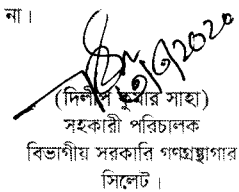 না।
৩/৭/২০২০
(দিলীপ কুমার সাহা)
সহকারী পরিচালক
বিভাগীয় সরকারি গণগ্রন্থাগার
সিলেট।